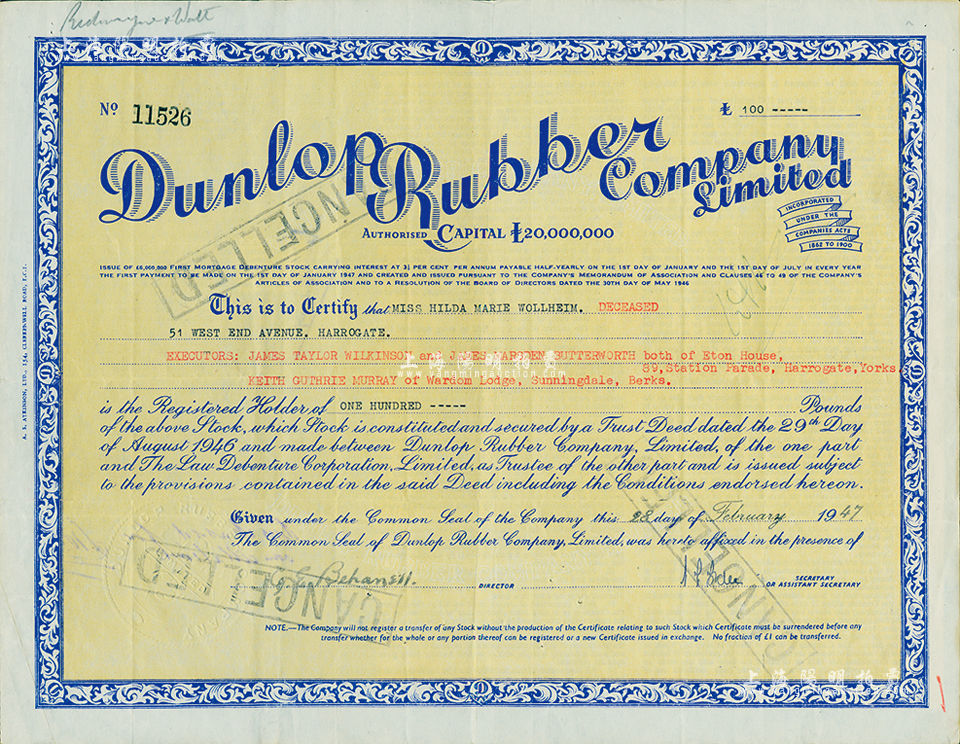 Nº 11526
£ 100 -----
Dunlop Rubber Company Limited
AUTHORISED CAPITAL £20,000,000
INCORPORATED
UNDER THE
COMPANIES ACTS
1862 TO 1900
ISSUE OF £6,000,000 FIRST MORTGAGE DEBENTURE STOCK CARRYING INTEREST AT 3½ PER CENT PER ANNUM PAYABLE HALF-YEARLY ON THE 1ST DAY OF JANUARY AND THE 1ST DAY OF JULY IN EVERY YEAR
THE FIRST PAYMENT TO BE MADE ON THE 1ST DAY OF JANUARY 1947 AND CREATED AND ISSUED PURSUANT TO THE COMPANY'S MEMORANDUM OF ASSOCIATION AND CLAUSES 46 TO 49 OF THE COMPANY'S
ARTICLES OF ASSOCIATION AND TO A RESOLUTION OF THE BOARD OF DIRECTORS DATED THE 30TH DAY OF MAY 1946
This is to Certify that MISS HILDA MARIE WOLLHEIM. DECEASED
51 WEST END AVENUE. HARROGATE.
EXECUTORS: JAMES TAYLOR WILKINSON and JAMES MARSDEN BUTTERWORTH both of Eton House,
89, Station Parade, Harrogate, Yorks.
KEITH GUTHRIE MURRAY of Wardom Lodge, Sunningdale, Berks.
is the Registered Holder of ONE HUNDRED ----- Pounds
of the above Stock, which Stock is constituted and secured by a Trust Deed dated the 29th Day
of August 1946 and made between Dunlop Rubber Company, Limited, of the one part
and The Law Debenture Corporation, Limited, as Trustee of the other part and is issued subject
to the provisions contained in the said Deed including the Conditions endorsed hereon.
Given under the Common Seal of the Company this 28 day of February 1947
The Common Seal of Dunlop Rubber Company, Limited, was hereto affixed in the presence of
DIRECTOR
SECRETARY
OR ASSISTANT SECRETARY
NOTE.—The Company will not register a transfer of any Stock without the production of the Certificate relating to such Stock which Certificate must be surrendered before any
transfer whether for the whole or any portion thereof can be registered or a new Certificate issued in exchange. No fraction of £1 can be transferred.
CANCELLED
CANCELLED
CANCELLED
A. S. ATKINSON, LTD., 154, CLERKENWELL ROAD, E.C.1.
上海阳明拍卖
www.yangmingauction.com